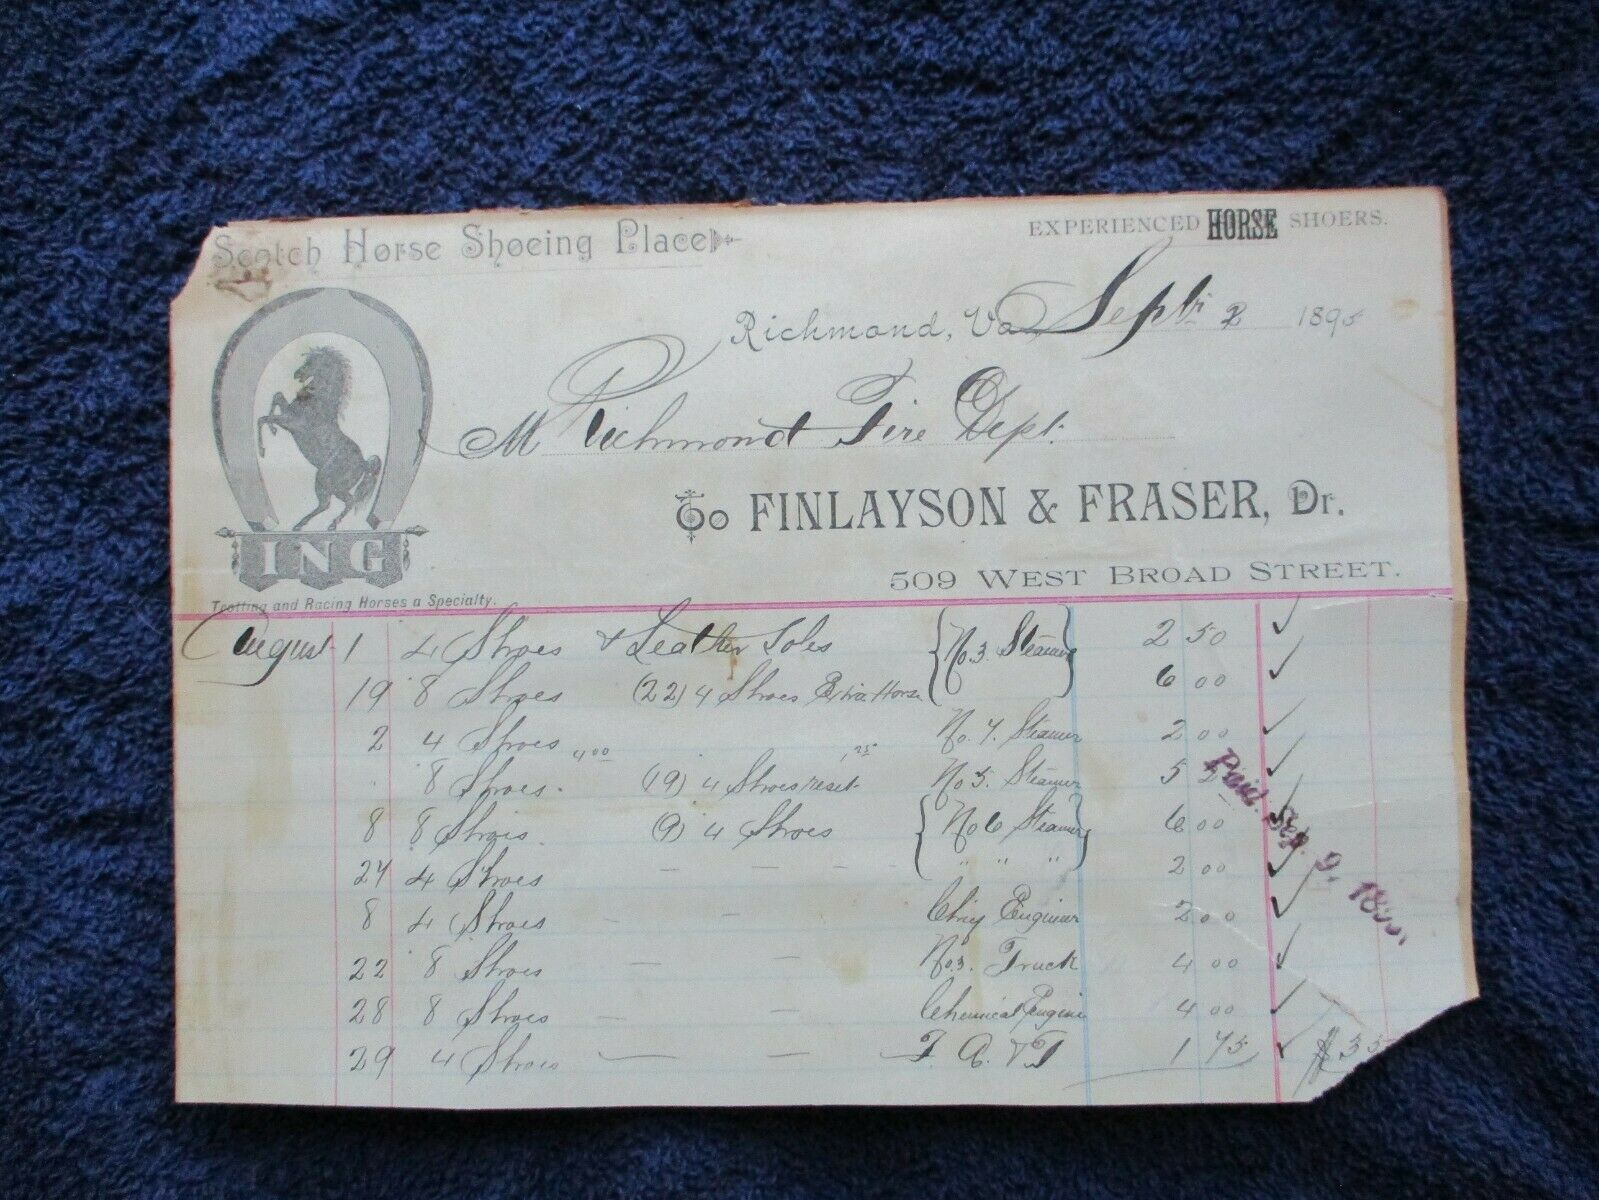 Scotch Horse Shoeing Place
EXPERIENCED HORSE SHOERS.
Richmond, Va Sept. 2 1895
M Richmond Fire Dept.
To FINLAYSON & FRASER, Dr.
509 WEST BROAD STREET.
ING
Trotting and Racing Horses a Specialty.
August 1 4 Shoes & Leather Soles No. 3. Steamer 2 50 ✓
19 8 Shoes (22) 4 Shoes Extra Horse 6 00 ✓
2 4 Shoes No. 4. Steamer 2 00 ✓
8 Shoes. 4.00 (19) 4 Shoes reset 1.25 No 5. Steamer 5 ✓
8 8 Shoes (9) 4 Shoes No 6 Steamer 6 00 ✓
24 4 Shoes — — " " " 2 00 ✓
8 4 Shoes — — Engineer 2 00 ✓
22 8 Shoes — — No 3. Truck 4 00 ✓
28 8 Shoes — — Chemical Engine 4 00 ✓
29 4 Shoes — — F. A. & T 1 75 ✓ $35
Paid Sep. 9, 1895.